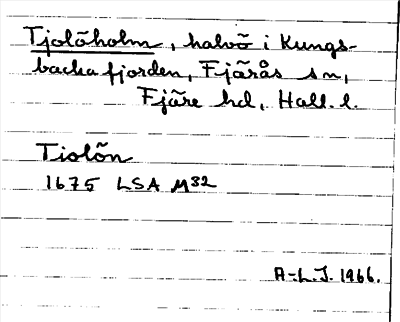 Tjolöholm, halvö i Kungs-
backafjorden, Fjärås sn,
Fjäre hd, Hall. l.
Tiolön
1675 LSA M32
A-L.J. 1966.